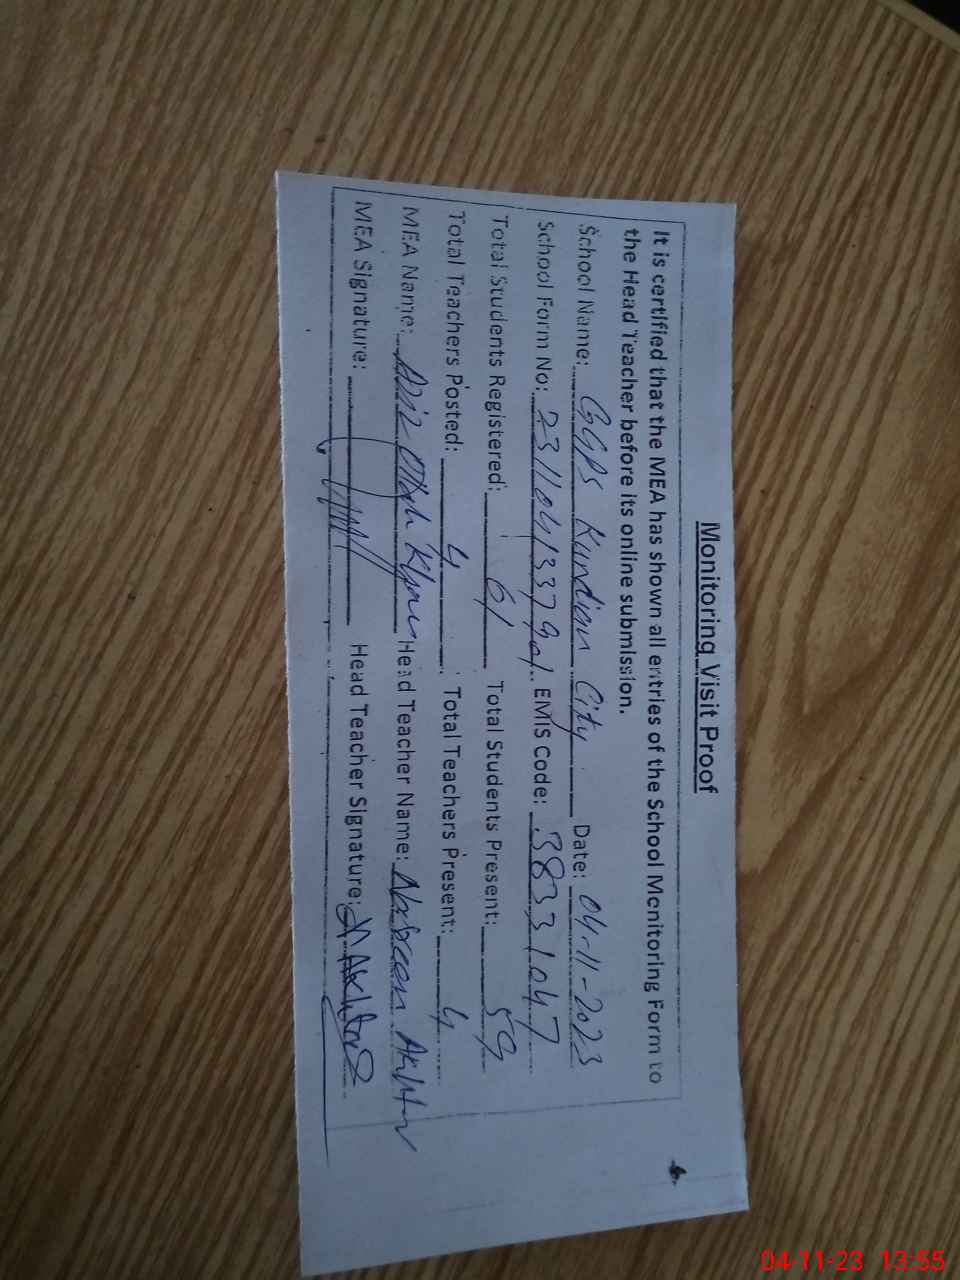 Monitoring Visit Proof
It is certified that the MEA has shown all entries of the School Monitoring Form to
the Head Teacher before its online submission.
School Name: GGPS Kundian City Date: 04-11-2023
School Form No: EMIS Code: 38331047
Total Students Registered: 61 Total Students Present: 59
Total Teachers Posted: 4 Total Teachers Present: 4
MEA Name: Khan Head Teacher Name: Akhtar
MEA Signature: Head Teacher Signature:
04-11-23 13:55